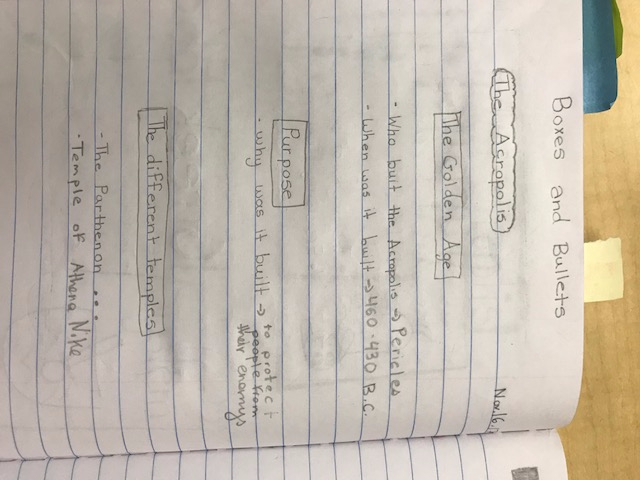 Boxes and Bullets
Nov. 16,
The Acropolis
The Golden Age
- Who built the Acropolis → Pericles
- When was it built → 460-430 B.C.
Purpose
- Why was it built → to protect
people from
their enemys
The different temples
- The Parthenon ...
- Temple of Athena Nike